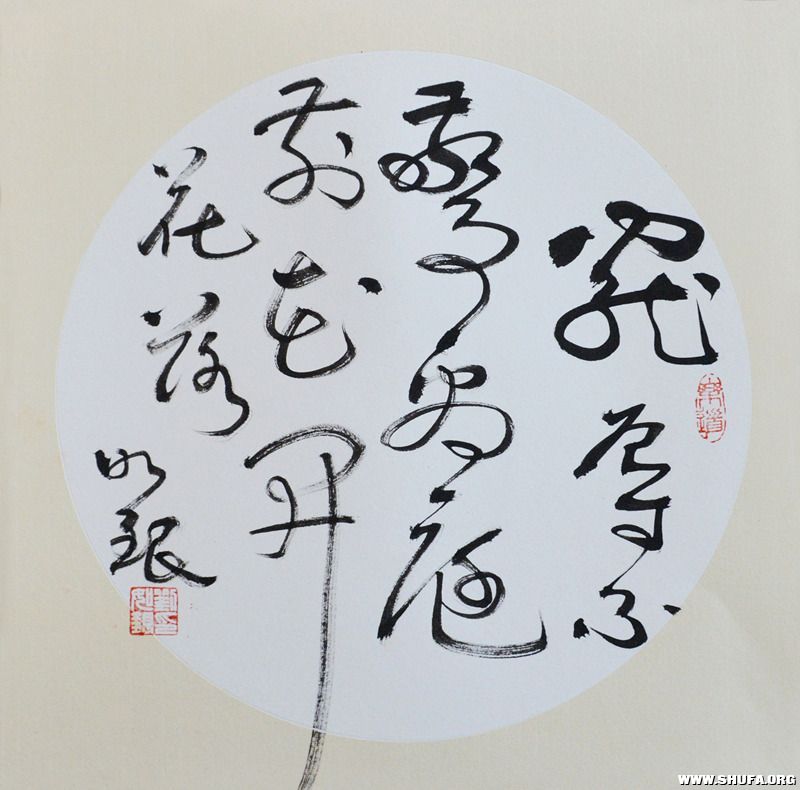 寵辱不
驚看庭
前花開
花落
明銀
WWW.SHUFA.ORG